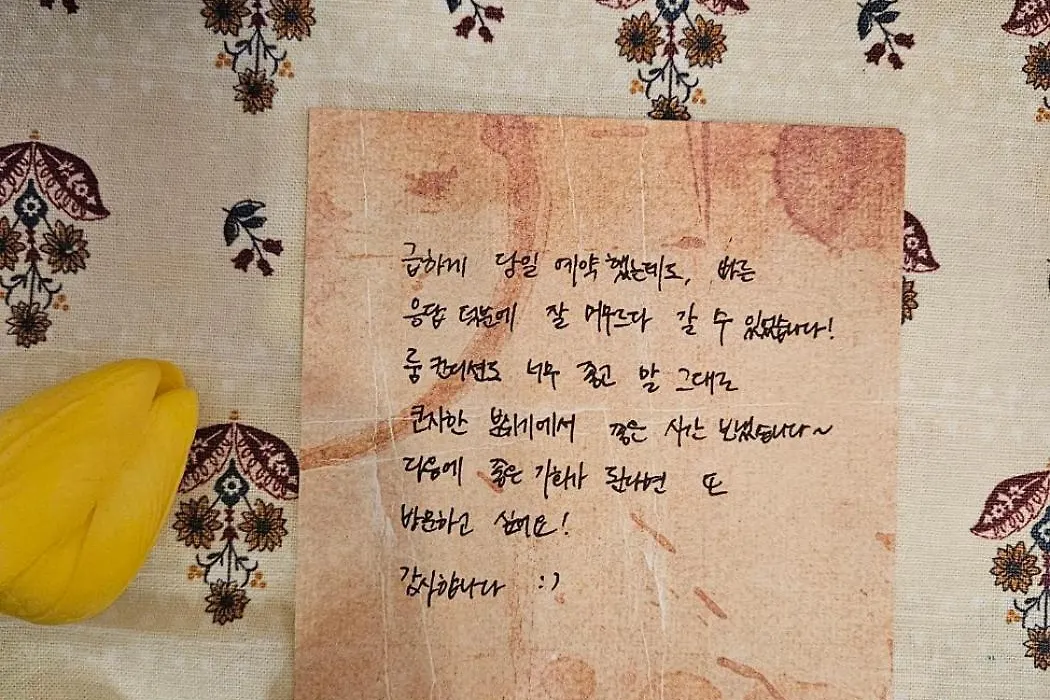 급하게 당일 예약했는데도, 빠른
응답 덕분에 잘 머무르다 갈 수 있었습니다!
룸 컨디션도 너무 좋고 말 그대로
큰사한 분위기에서 좋은 시간 보냈습니다~
다음에 좋은 기회가 된다면 또
방문하고 싶어요!
감사합니다 :)